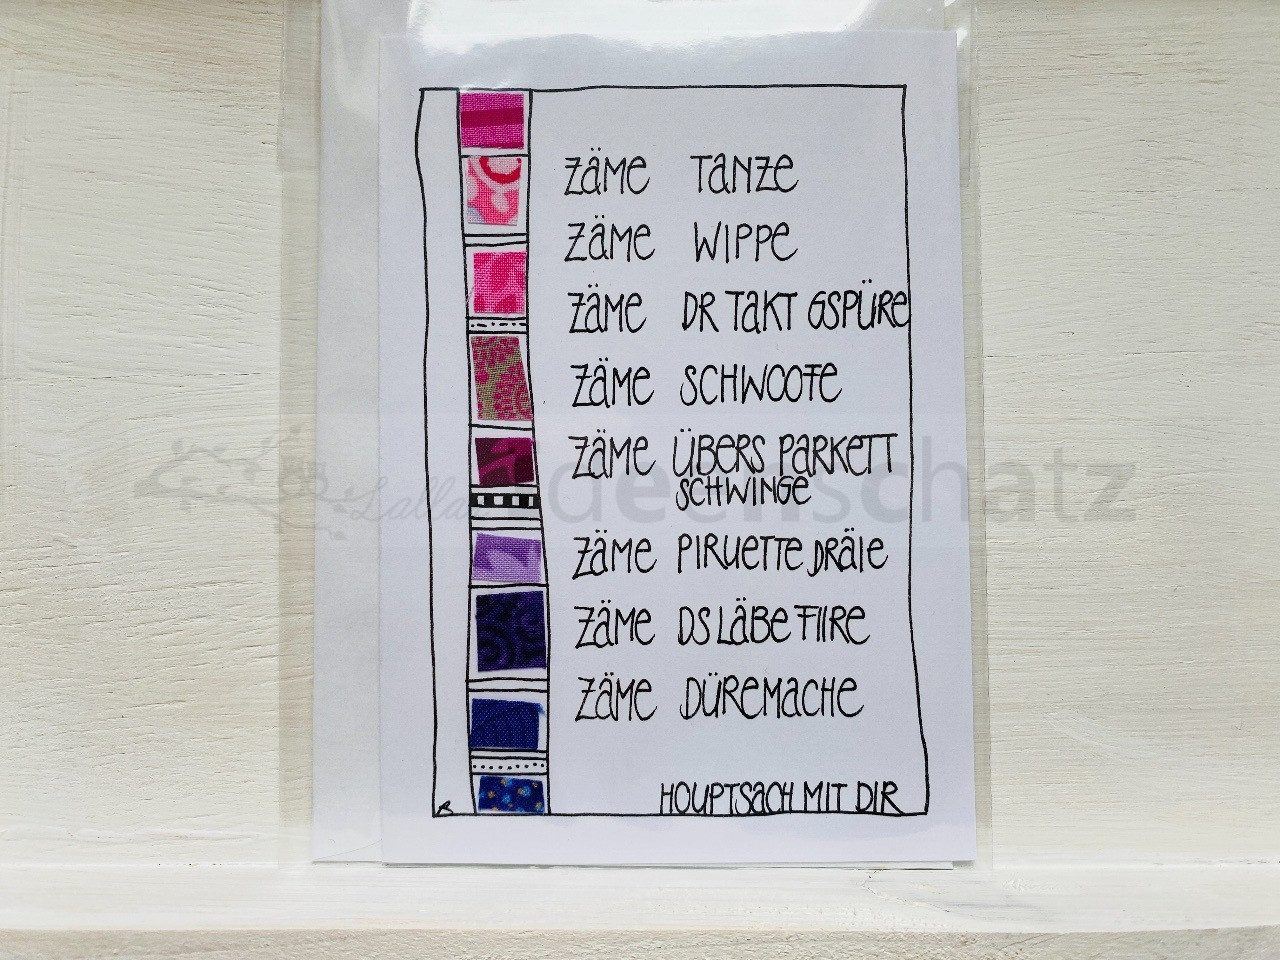 ZÄME TANZE
ZÄME WIPPE
ZÄME DR TAKT GSPÜRE
ZÄME SCHWOOFE
ZÄME ÜBERS PARKETT
SCHWINGE
ZÄME PIRUETTE DRÄIE
ZÄME DS LÄBE FIIRE
ZÄME DÜREMACHE
HOUPTSACH MIT DIR
ideenschatz